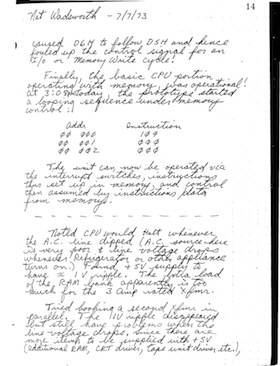 14
Nat Wadsworth - 7/7/73
caused D6H to follow D5H and hence
fouled up the control signal for an
I/O or Memory Write cycle!
Finally, the basic CPU portion
operating with memory, was operational!
at 3:05 today, the prototype started
a looping sequence under memory
control:
Addr Instruction
00 000 104
00 001 000
00 002 000
The unit can now be operated via
the interrupt switches, instructions
thus set up in memory, and control
then assumed by instructions/data
from memory.
Noted CPU would Halt whenever
the A.C. line dipped (A.C. source here
is very poor & line voltage drops
whenever Refrigerator or other appliance
turns on.) Found +5V supply
have ≈ 1V ripple. The extra load
of the RAM bank apparently is too
much for the 3 Amp rated Xfmr.
Tried hooking a second xfmr in
parallel. The 1V ripple disappeared
but still have problems when the
line voltage drops. Since there are
more items to be supplied with +5V
(additional RAM, CRT driver, tape unit driver, etc.),